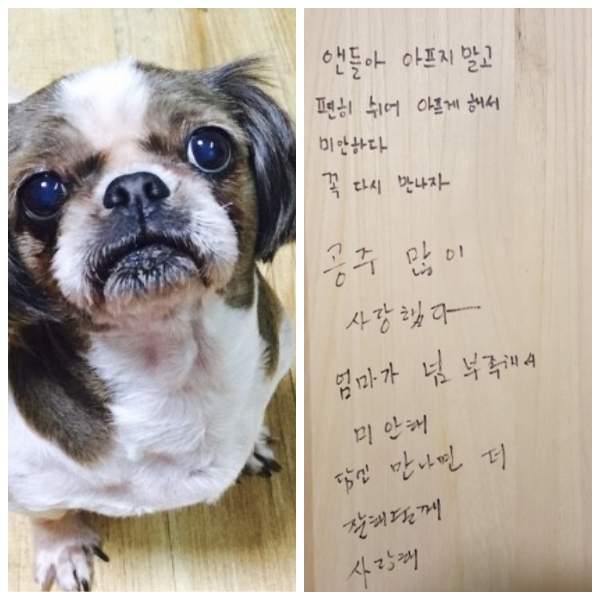 앤들아 아프지 말고
편히 쉬어 아프게 해서
미안하다
꼭 다시 만나자
공주 많이
사랑했다
엄마가 넘 부족해서
미안해
담엔 만나면 더
잘해줄께
사랑해